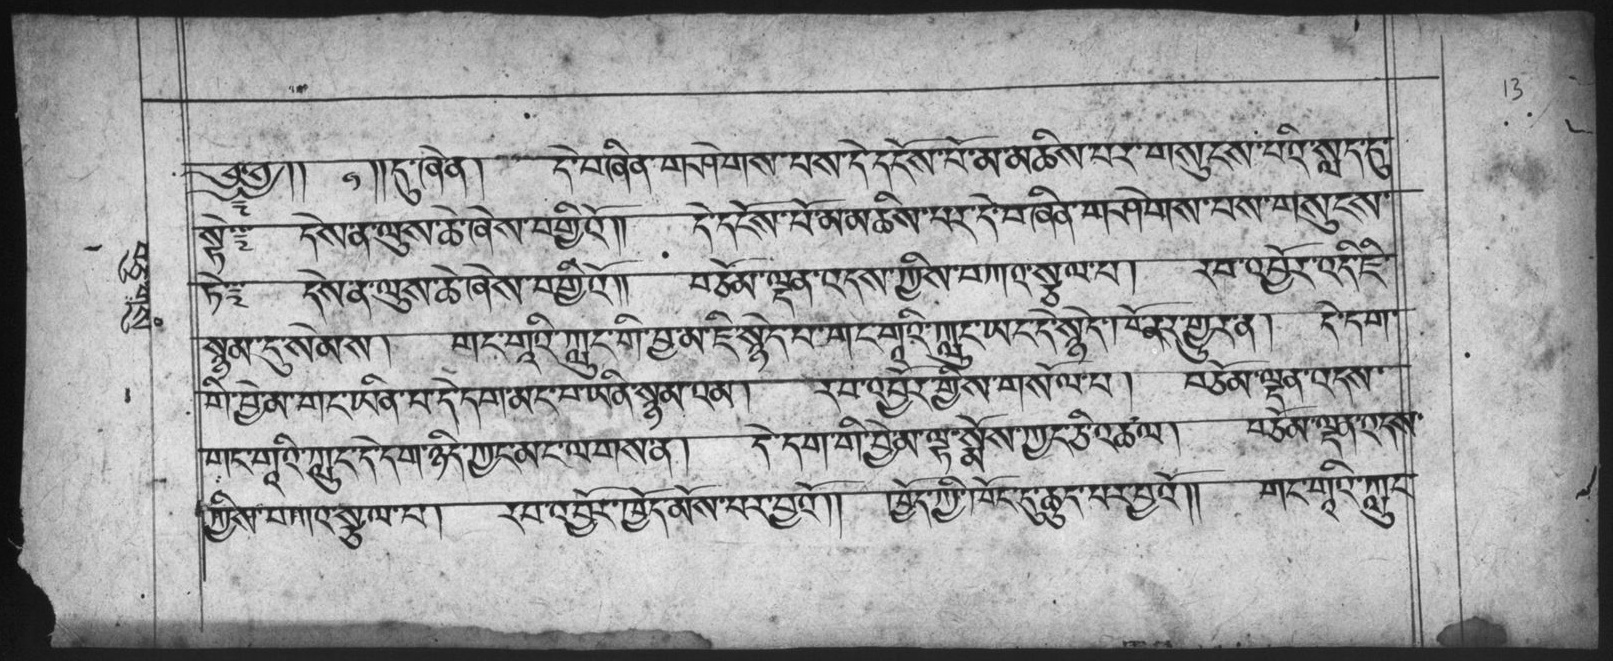 ༄༅།། ༡ །།དུ་ཞིན། དེ་བཞིན་གཤེགས་པས་དེ་དངོས་པོ་མ་མཆིས་པར་གསུངས་པའི་སླད་དུ
སྟེ༔ དེས་ན་ལུས་ཆེ་ཞེས་བགྱིའོ།། དེ་དངོས་པོ་མ་མཆིས་པར་དེ་བཞིན་གཤེགས་པས་གསུངས་
ཏེ༔ དེས་ན་ལུས་ཆེ་ཞེས་བགྱིའོ།། བཅོམ་ལྡན་འདས་ཀྱིས་བཀའ་སྩལ་པ། རབ་འབྱོར་འདི་ཇི་
སྙམ་དུ་སེམས། གང་གཱའི་ཀླུང་གི་བྱེ་མ་ཇི་སྙེད་པ་གང་གཱའི་ཀླུང་ཡང་དེ་སྙེད་
གི་བྱེ་མ་གང་ཡིན་པ་དེ་དག་མང་བ་ཡིན་སྙམ་འམ། རབ་འབྱོར་གྱིས་གསོལ་པ། བཅོམ་ལྡན་འདས་
གང་གཱའི་ཀླུང་དེ་དག་ཉིད་ཀྱང་མང་ལགས་ན། དེ་དག་གི་བྱེ་མ་ལྟ་སྨོས་ཀྱང་ཅི་འཚལ། བཅོམ་ལྡན་འདས་
ཀྱིས་བཀའ་སྩལ་པ། རབ་འབྱོར་ཁྱོད་མོས་པར་བྱའོ།། ཁྱོད་ཀྱི་ཁོང་དུ་ཆུད་པར་བྱའོ།། གང་གཱའི་ཀླུང
13